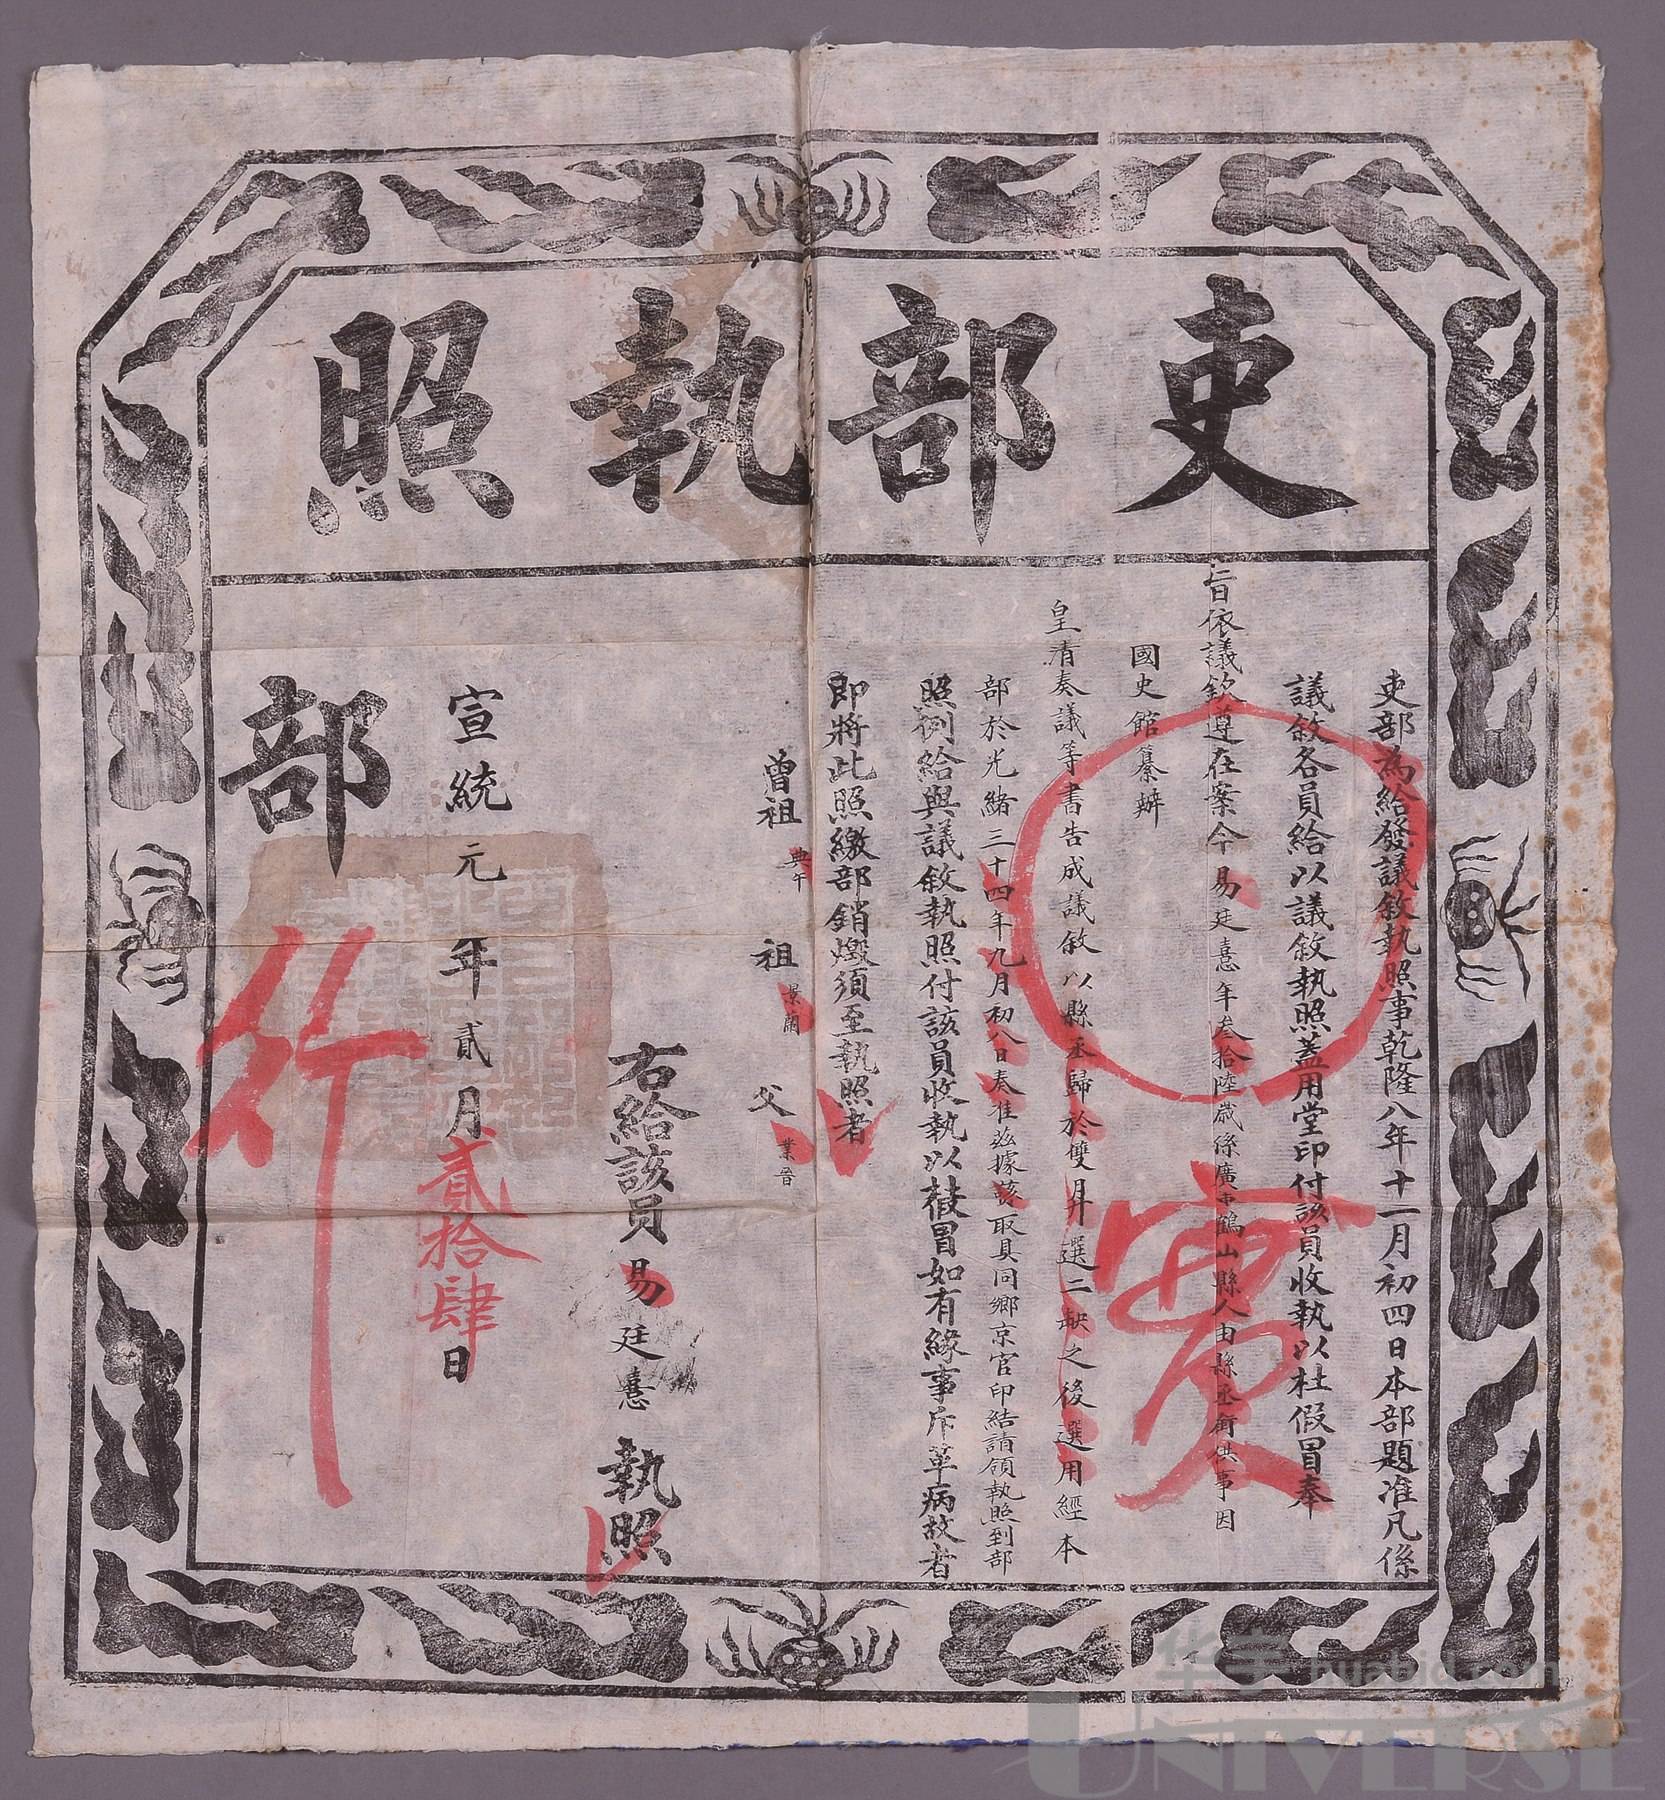 吏部執照
吏部為給發議敘執照事乾隆八年十一月初四日本部題准凡係
議敘各員給以議敘執照蓋用堂印付該員收執以杜假冒奉
旨依議欽遵在案今易廷憙年叁拾陸歲係廣東鶴山縣人由縣丞銜供事因
國史館纂辦
皇清奏議等書告成議敘以縣丞歸於雙月選二缺之後選用經本
部於光緒三十四年九月初八日奏准茲據該取具同鄉京官印結請領執照到部
照例給與議敘執照付該員收執以杜假冒如有緣事斥革病故者
即將此照繳部銷燬須至執照者
曾祖 典午 祖 景蘭 父 業晉
右給該員易廷憙執照
宣統元年貳月貳拾肆日
部
行
實
华宇 huabid.com
UNIVERSE